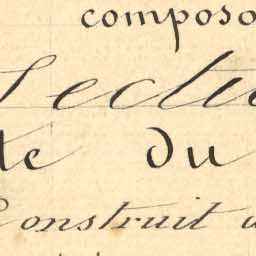 composo
Lectu
te du
Construit